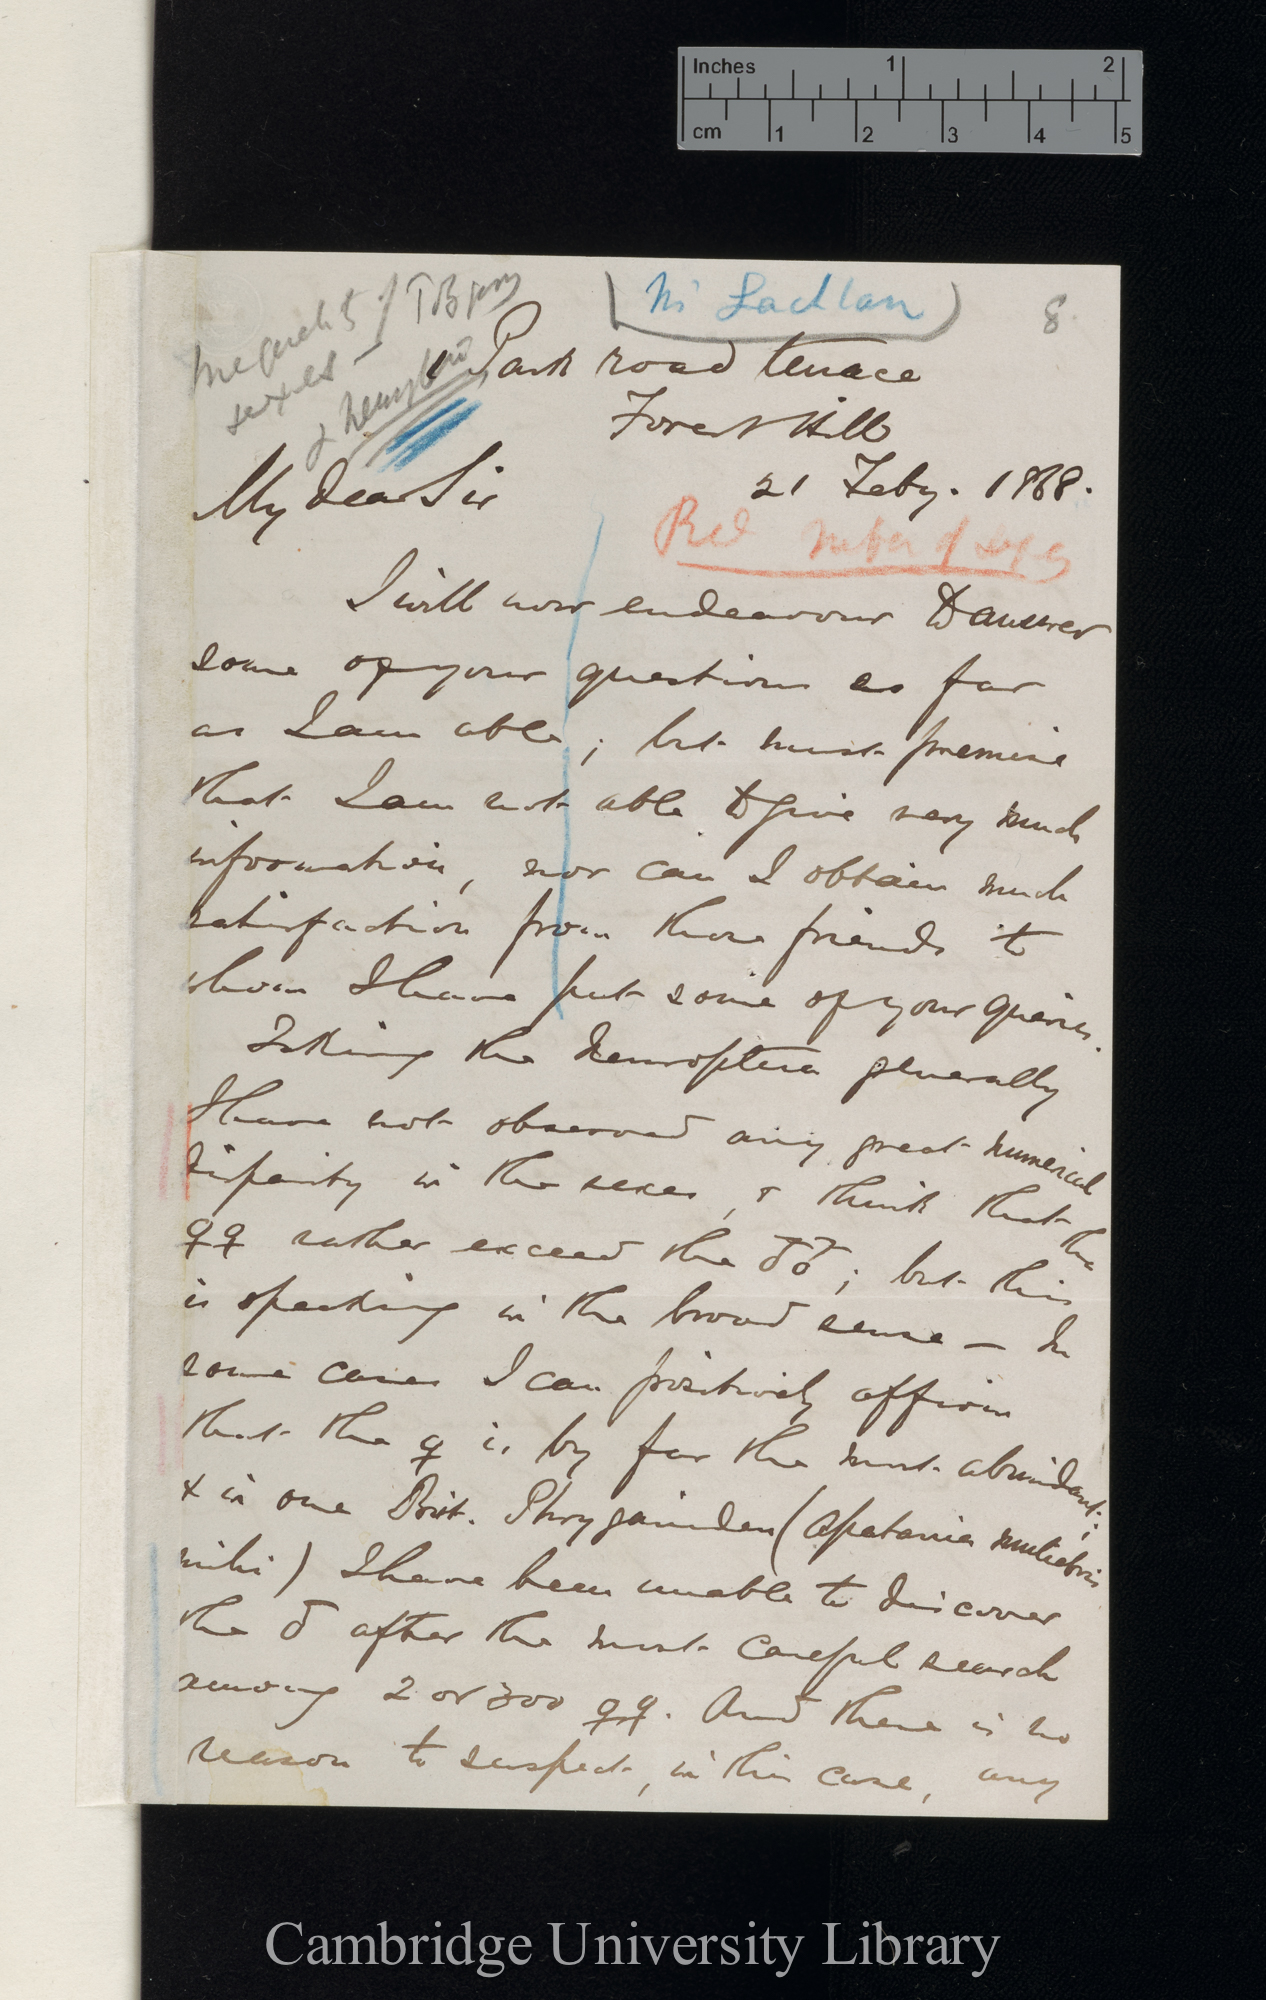 Inches 1 2
cm 1 2 3 4 5
(Mc Lachlan)
8
sexes —
1 Park road terrace
Forest Hill
21 Feby. 1868.
My dear Sir
Red number of sexes
I will now endeavour to answer
some of your questions as far
as I am able; but must premise
that I am not able to give very much
information, nor can I obtain much
satisfaction from those friends to
whom I have put some of your queries.
Taking the Neuroptera generally
I have not observed any great numerical
disparity in the sexes, & think that the
♀♀ rather exceed the ♂♂; but this
is speaking in the broad sense — In
some cases I can positively affirm
that the ♀ is by far the most abundant;
& in one Brit. Phryganidea (Apatania muliebris
mihi) I have been unable to discover
the ♂ after the most careful search
among 2 or 300 ♀♀. And there is no
reason to suspect, in this case, any
Cambridge University Library